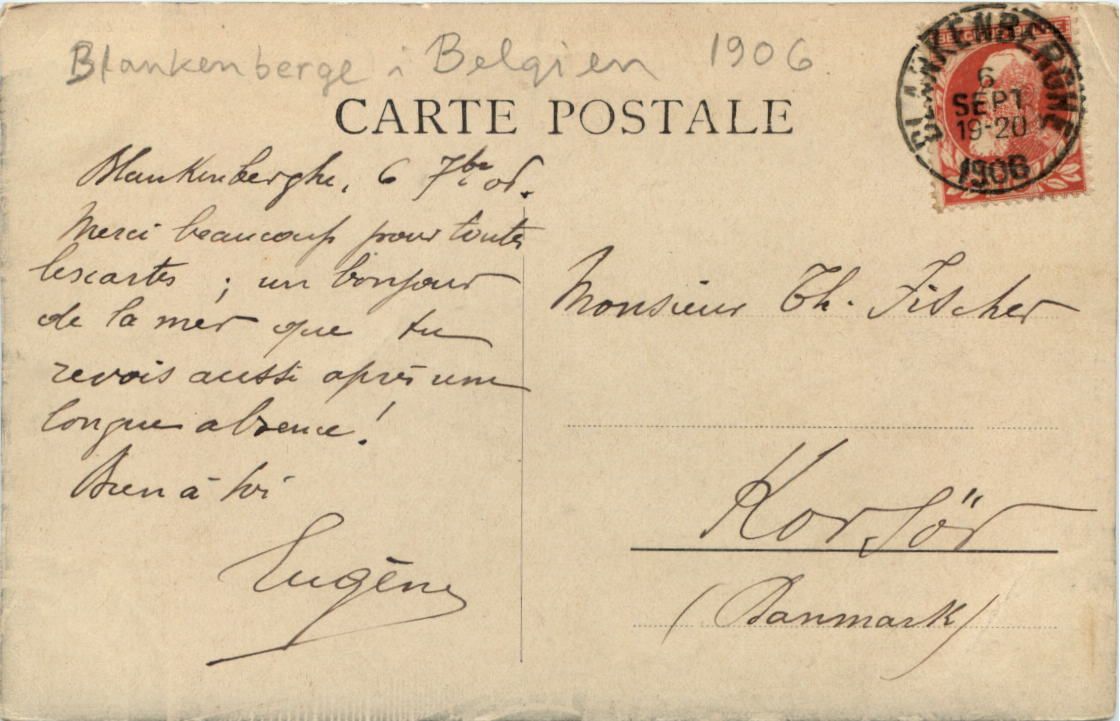 Blankenberge i Belgien 1906
CARTE POSTALE
BLANKENBERGHE
6
SEPT
19-20
1906
Blankenberghe, 6 7bre 06.
Merci beaucoup pour toutes
les cartes ; un bonjour
de la mer que tu
revois aussi après une
longue absence !
Bien à toi
Eugène
Monsieur Th. Fischer
Korsör
(Danmark)